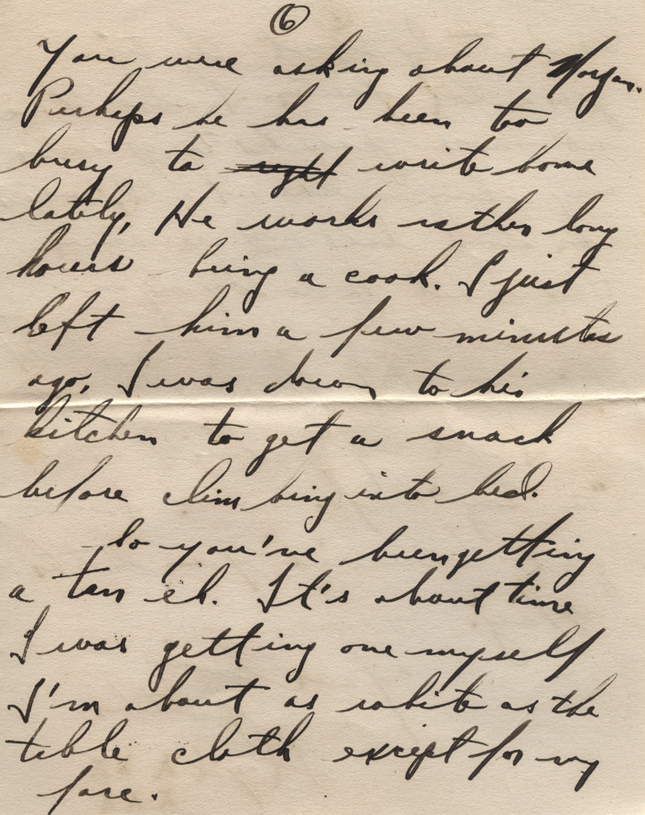 6
You were asking about Morgan.
Perhaps he has been too
busy to write home
lately, He works rather long
hours being a cook. I just
left him a few minutes
ago, I was down to his
kitchen to get a snack
before climbing into bed.
So you've been getting
a tan eh. It's about time
I was getting one myself
I'm about as white as the
table cloth except for my
face.